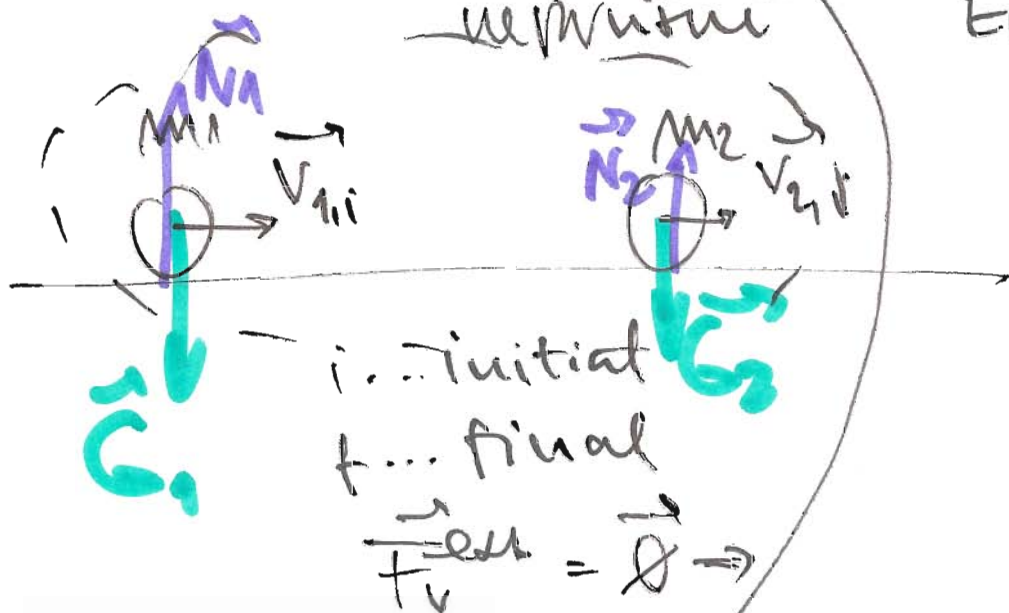 N⃗1
m1 v⃗1,i
N⃗2 m2 v⃗2,i
G⃗1 G⃗2
i...initial
f... final
F⃗ᵥᵉˣᵗ = 0⃗ ⇒